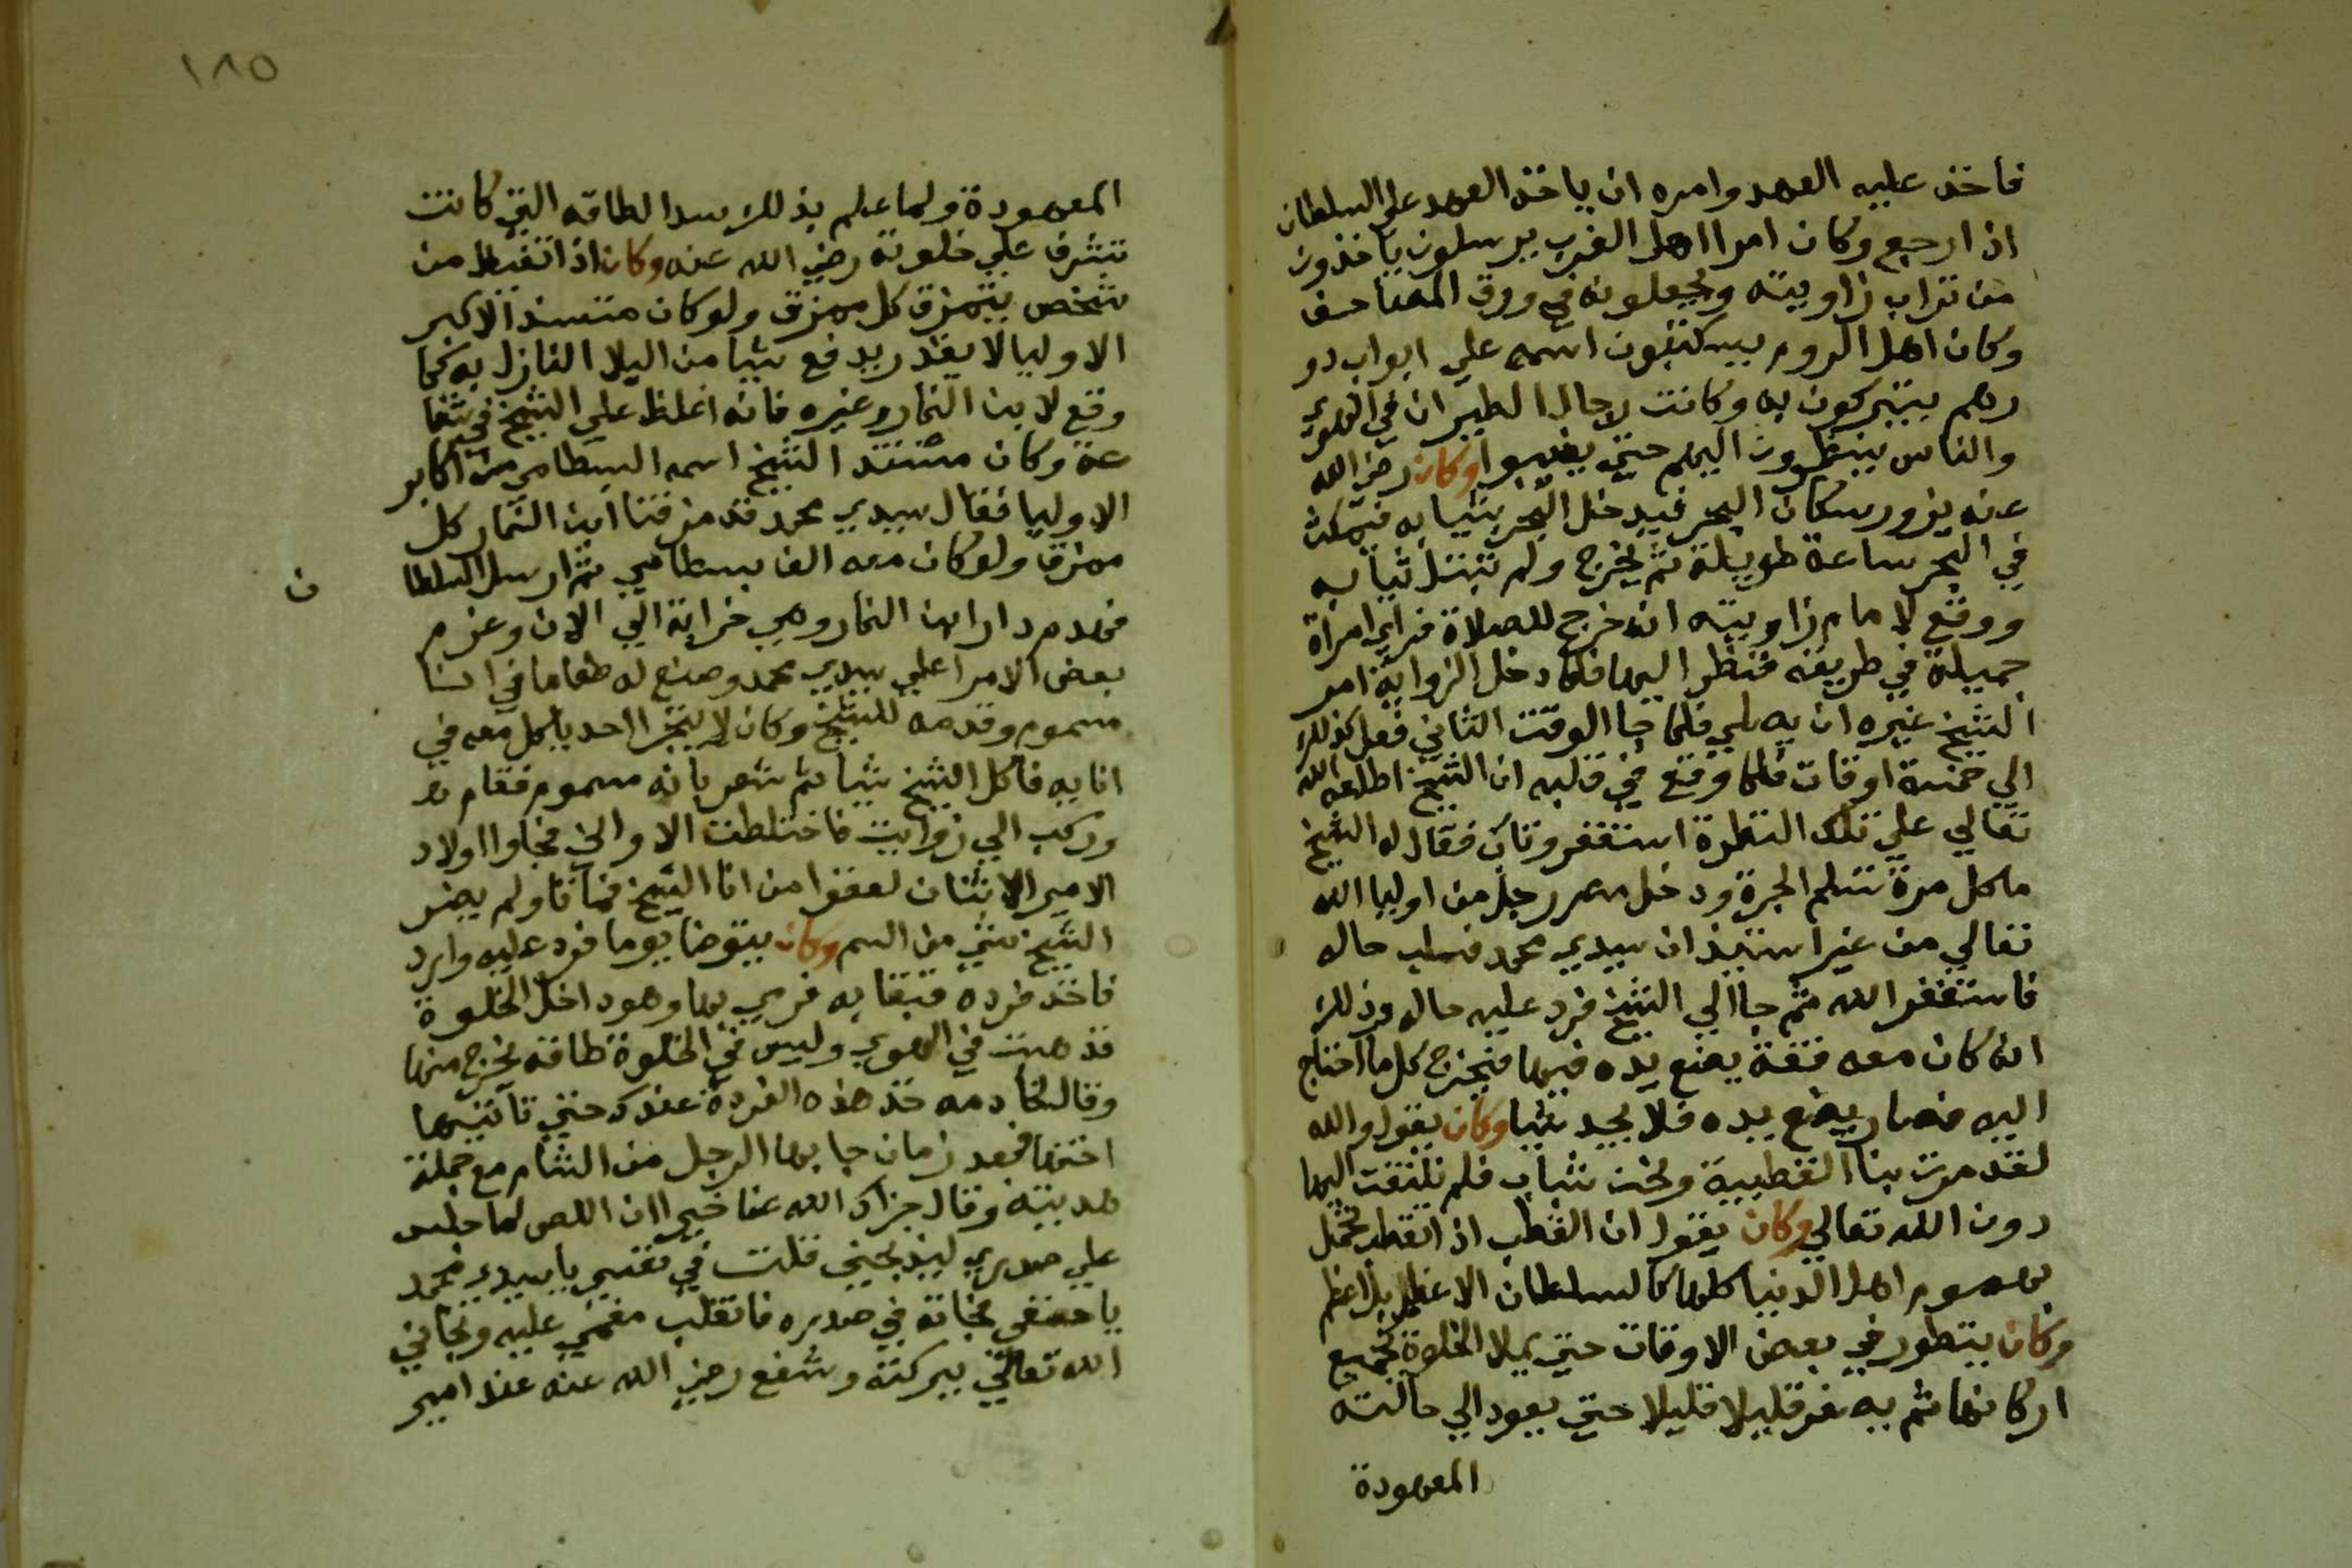 فاخذ عليه العهد وامره ان ياخذ العهد علي السلطان
اذا رجع وكان امرا اهل الغرب يرسلون ياخذون
من تراب زاويته ويجعلونه في ورق المصاحف
وكان اهل الروم بيكتبون اسمه علي ابواب دو
رهم يتبركون به وكانت رجال الطيران في الهوي
والناس ينظرون اليهم حتي يغيبوا وكان رضي الله
عنه يزور سكان البحر فيدخل البحر بثيابه فيمكث
في البحر ساعة طويلة ثم يخرج ولم تبتل ثيابه
ووقع لامام زاويته انه خرج للصلاة فراي امراة
جميلة في طريقه فنظر اليها فلما دخل الزواية امر
الشيخ غيره ان يصلي فلما جا الوقت الثاني فعل كذلك
الي خمسة اوقات فلما وقع في قلبه ان الشيخ اطلعه الله
تعالي علي تلك النظرة استغفر وتاب فقال له الشيخ
ما كل مرة تسلم الجرة ودخل مصر رجل من اوليا الله
تعالي من غير استيذان سيدي محمد فسلب حاله
فاستغفر الله ثم جا الي الشيخ فرد عليه حاله وذلك
انه كان معه قفة يضع يده فيها فيخرج كل ما احتاج
اليه فصار يضع يده فلا يجد شيا وكان يقول والله
لقد مرت بنا القطبية ونحن شباب فلم نلتفت اليها
دون الله تعالي وكان يقول ان القطب اذا تقطب تحمل
هموم اهل الدنيا كلها كالسلطان الاعظم بل اعظم
وكان يتطور في بعض الاوقات حتي يملا الخلوة بجميع
اركانها ثم يصغر قليلا قليلا حتي يعود الي حالته
المعهودة
١٨٥
المعهودة ولما علم بذلك سد الطاقه التي كانت
تشرف علي خلوته رضي الله عنه وكان اذا تغيظ من
شخص يتمزق كل ممزق ولو كان مستند الاكبر
الاوليا لا يقدر يدفع شيا من البلا النازل به كما
وقع لابن التمار وغيره فانه اغلظ علي الشيخ في شفا
عة وكان مستند الشيخ اسمه البسطامي من اكابر
الاوليا فقال سيدي محمد قد مزقنا ابن التمار كل
ممزق ولو كان معه الف بسطامي ثم ارسل السلطا
ن
فهدم دار ابن التمار وهي خرابة الي الان وعزم
بعض الامرا علي سيدي محمد وصنع له طعاما في انا
مسموم وقدمه للشيخ وكان لا يتجرا احد ياكل معه في
انايه فاكل الشيخ شيا ثم شعر بانه مسموم فقام
وركب الي زوايت فاختلطت الاواني فجاوا اولاد
الامير الاثنان لعقوا من انا الشيخ فماتا ولم يضر
الشيخ شي من السم وكان يتوضا يوما فورد عليه وارد
فاخذ فردة قبقابه فرمي بها وهو داخل الخلوة
فذهبت في الهوي وليس في الخلوة طاقة تخرج منها
وقال لخادمه خذ هذه الفردة عندك حتي تاتيها
اختها فبعد زمان جا بها الرجل من الشام مع جملة
هديته وقال جزاك الله عنا خيرا ان اللص لما جلس
علي صدري ليذبحني قلت في نفسي يا سيدي محمد
يا حنفي فجاته في صدره فانقلب مغمي عليه ونجاني
الله تعالي ببركته وشفع رضي الله عنه عند امير